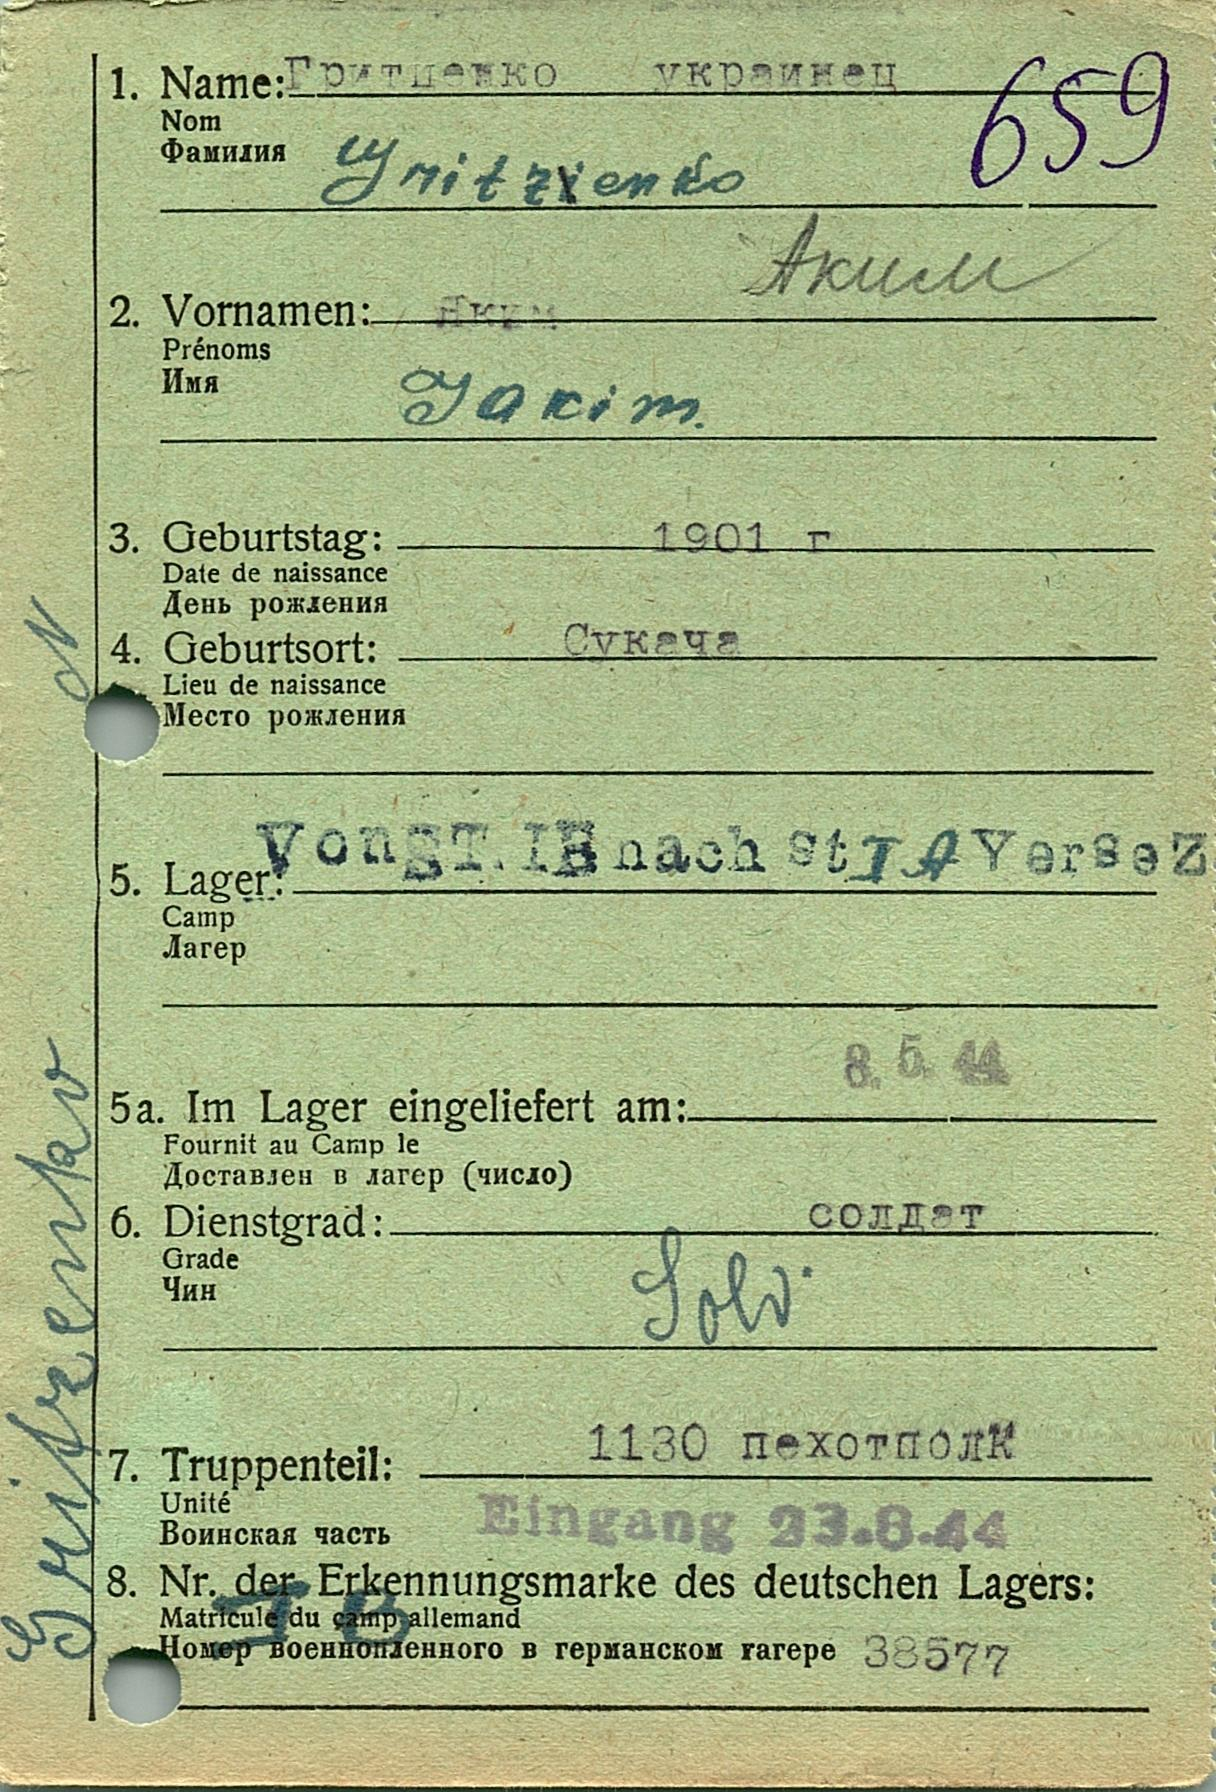 1. Name: Гритценко украинец
659
Nom
Фамилия
Gritzienko
Аким
2. Vornamen: Яким
Prénoms
Имя
Jakim.
3. Geburtstag: 1901 г
Date de naissance
День рождения
4. Geburtsort: Сукача
Lieu de naissance
Место рождения
Von ST. IB nach St IA Versez
5. Lager:
Camp
Лагер
8. 5. 44
5a. Im Lager eingeliefert am:
Fournit au Camp le
Доставлен в лагер (число)
6. Dienstgrad: солдат
Grade
Чин
Sold.
1130 пехотполк
7. Truppenteil:
Unité
Воинская часть
Eingang 23.8.44
8. Nr. der Erkennungsmarke des deutschen Lagers:
Matricule du camp allemand
IB
Номер военнопленного в германском гагере 38577
Gritzenko